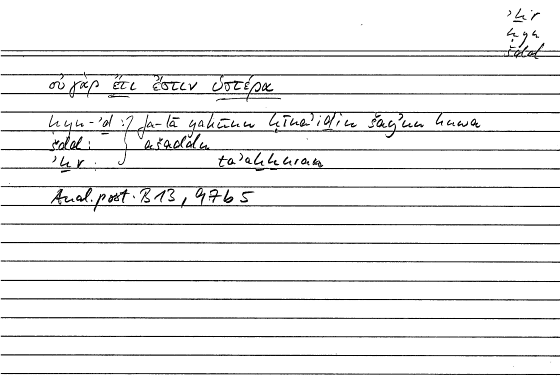 ʾḫr
ḥyn
šdd
οὐ γὰρ ἔτι ἔστιν ὑστέρα
ḥyn-ʾḏ : fa-lā yakūnu ḥīnaʾiḏin šayʾun huwa
šdd : ašadda
ʾḫr : taʾaḫḫuran
Anal. post. B 13, 97b5